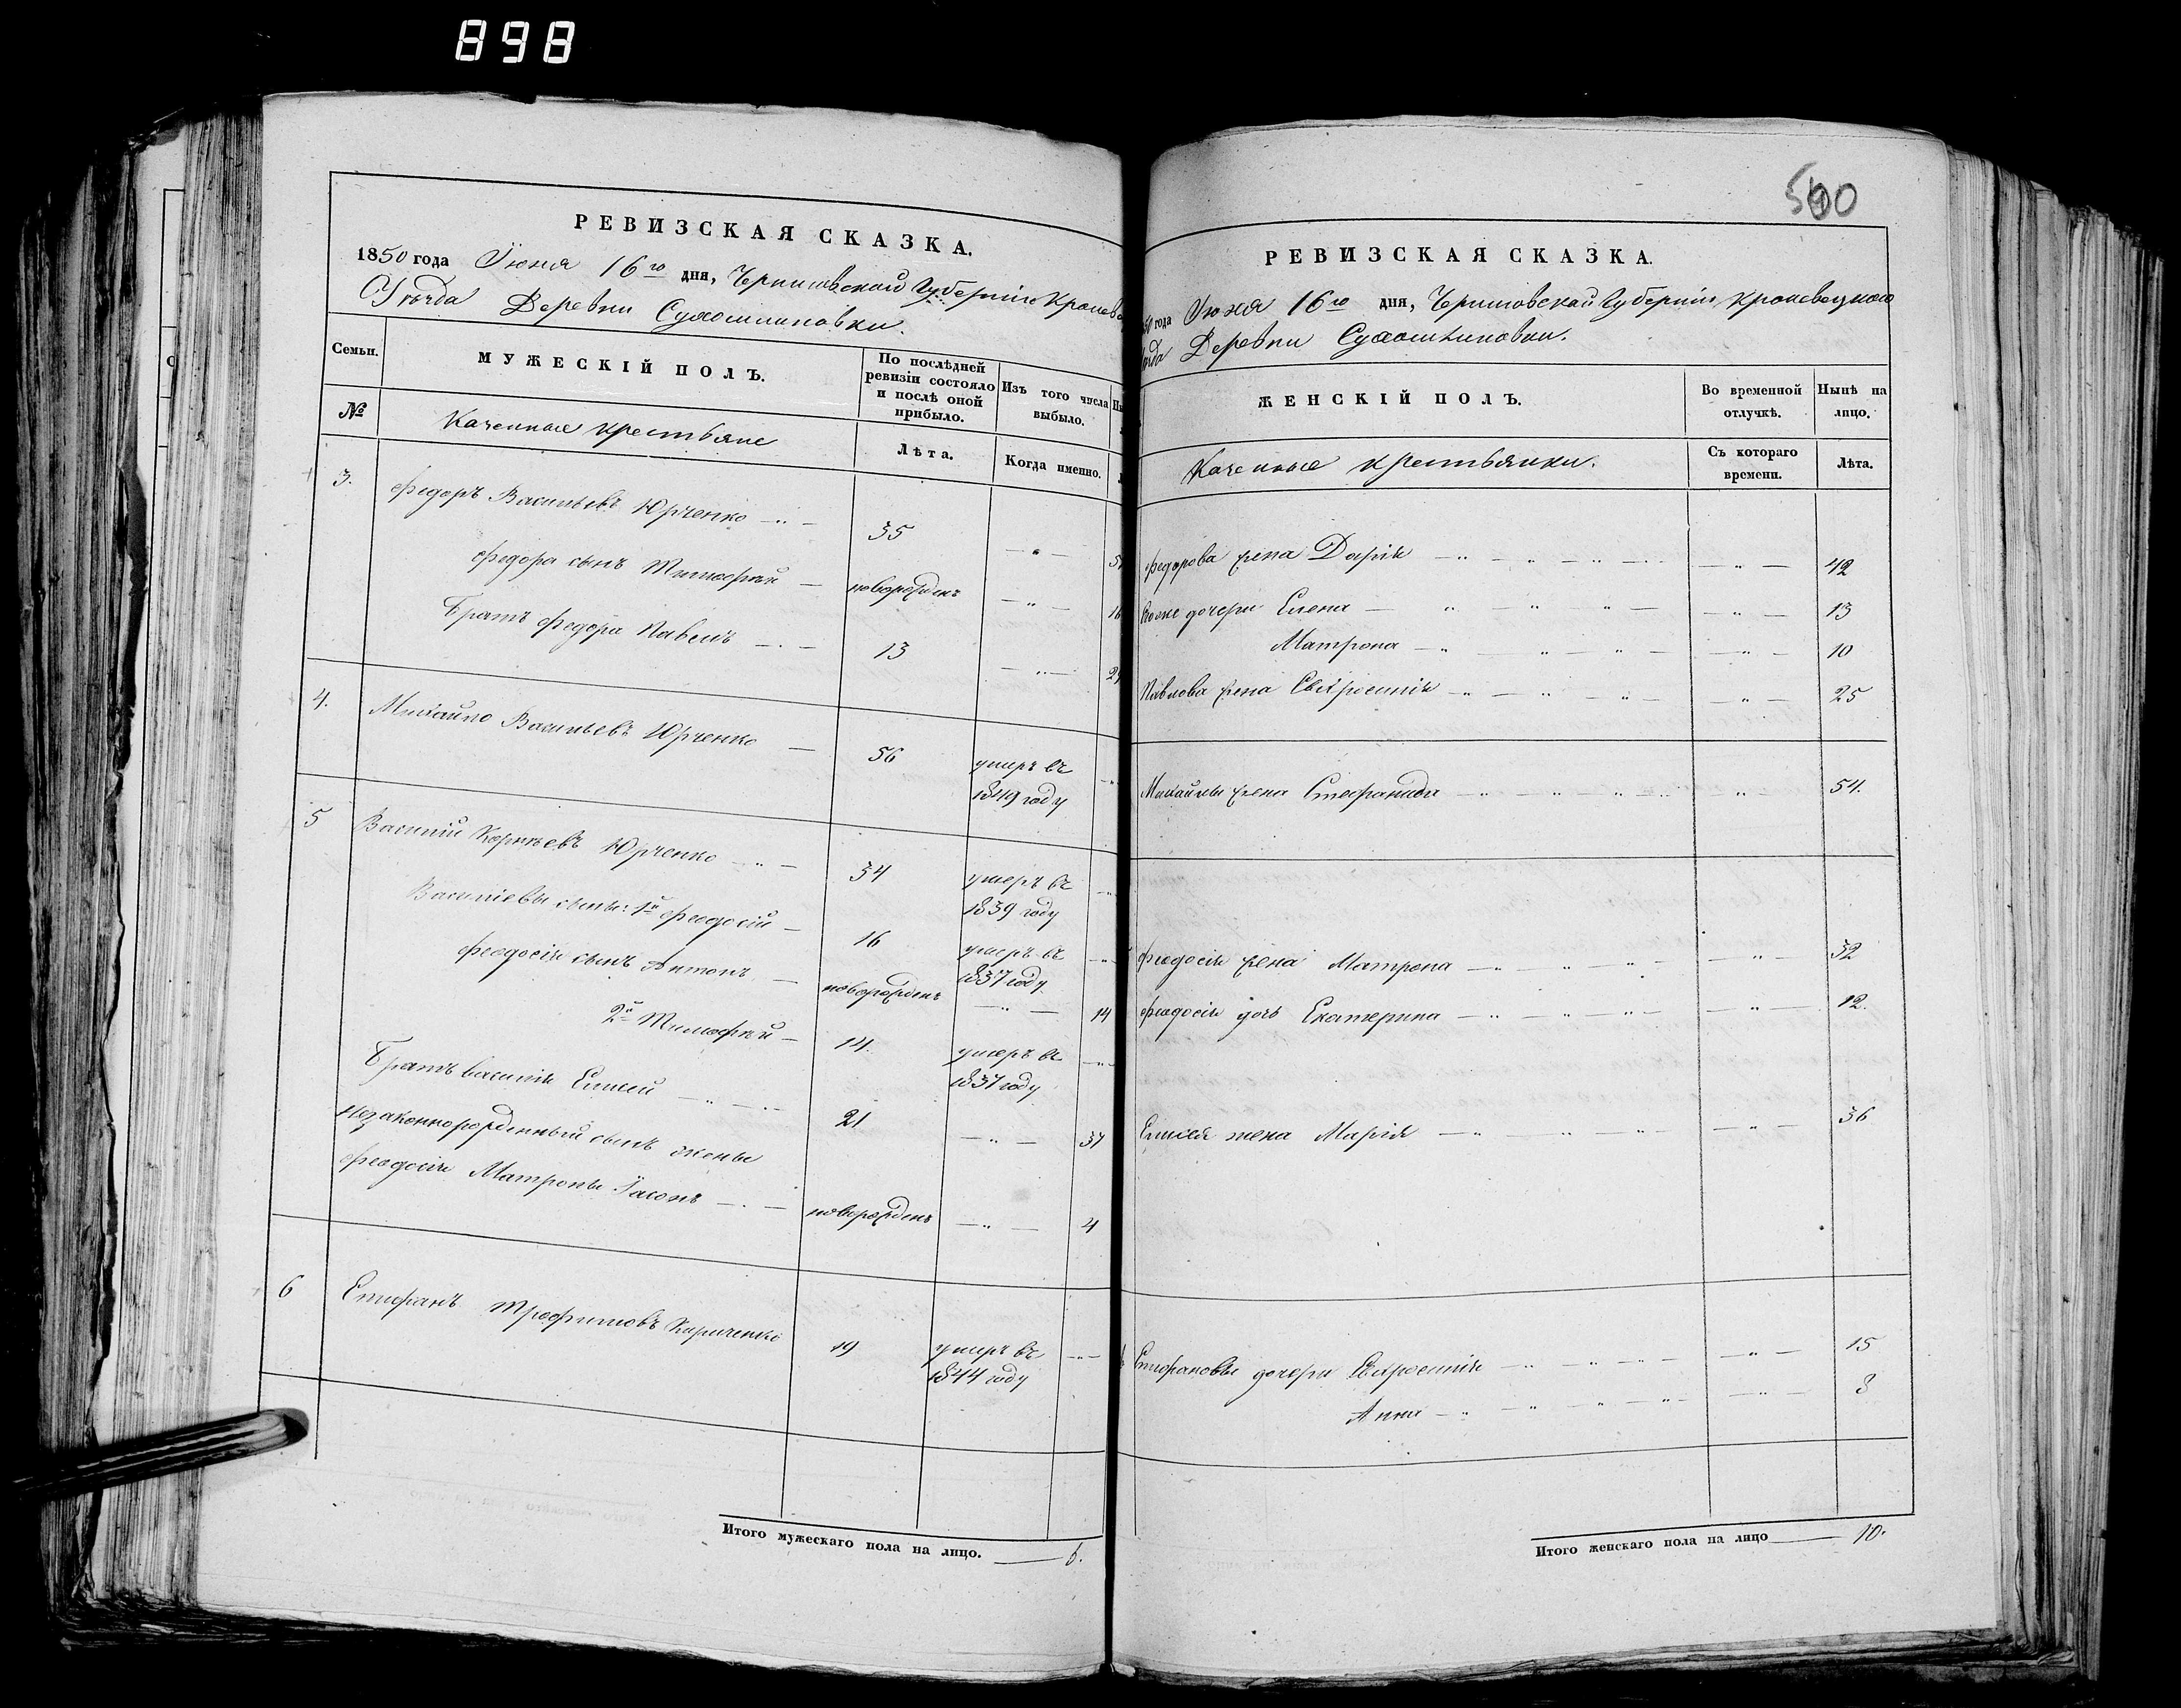 898
РЕВИЗСКАЯ СКАЗКА.
1850 года Іюня 16го дня, Черниговской Губерніи Кролев
Уѣзда Деревни Сухомлиновки.
Семьи.
МУЖЕСКІЙ ПОЛЪ.
По послѣдней
ревизіи состояло
и послѣ оной
прибыло.
Изъ того числа
выбыло.
№
Казенные крестьяне
Лѣта.
Когда именно.
3.
Федоръ Васильевъ Юрченко — „ —
35
— „ —
Федора сынъ Тимофѣй —
новорожденъ
— „ —
16
Братъ Федора Павелъ — „ —
13
— „ —
4.
Михайло Васильевъ Юрченко —
56
умеръ въ
1849 году
5
Василій Корнѣевъ Юрченко — „ —
34
умеръ въ
1839 году
Василіевы сыны: 1й Феодосій —
16
умеръ въ
1837 году
Феодосія сынъ Антонъ —
новорожденъ
— „ —
14
2й Тимофѣй —
14.
умеръ въ
1837 году
Братъ Василія Елисей — „ — „ —
21
— „ —
37
Незаконнорожденный сынъ жены
Феодосія Матроны Іасонъ — „ —
новорожденъ
— „ —
4
6
Епифанъ Трофимовъ Кириченко
19
умеръ въ
1844 году
Итого мужескаго пола на лицо. — 6.
500
РЕВИЗСКАЯ СКАЗКА.
50 года Іюня 16го дня, Черниговской Губерніи, Кролевецкого
Деревни Сухомлиновки.
ЖЕНСКІЙ ПОЛЪ.
Во временной
отлучкѣ.
Нынѣ на
лицо.
Казенные крестьянки.
Съ котораго
времени.
Лѣта.
Федорова жена Дарія — „ — „ — „ —
— „ —
42
Его же дочери Елена — „ — „ — „ —
— „ —
13
Матрона — „ — „ — „ —
— „ —
10
Павлова жена Евфросинія — „ — „ — „ —
— „ —
25
Михайлы жена Стефанида — „ — „ — „ —
„ —
54.
Феодосія жена Матрона — „ — „ — „ —
— „ —
32
Феодосія дочь Екатерина — „ — „ — „ —
— „ —
12.
Елисея жена Марія — „ — „ — „ —
— „ —
36
Епифановы дочери Евфросинія — „ — „ — „ —
— „ —
15
Анна — „ — „ — „ — „ —
— „ —
8
Итого женскаго пола на лицо — 10.